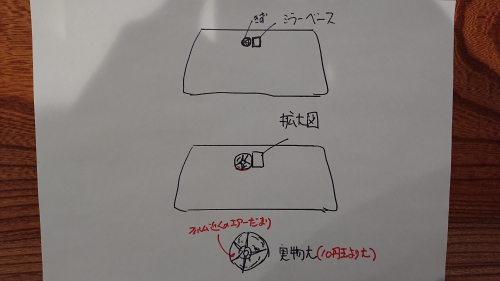 きず ミラーベース
拡大図
フィルム近くのエアーだまり
実物大(10円玉より大)